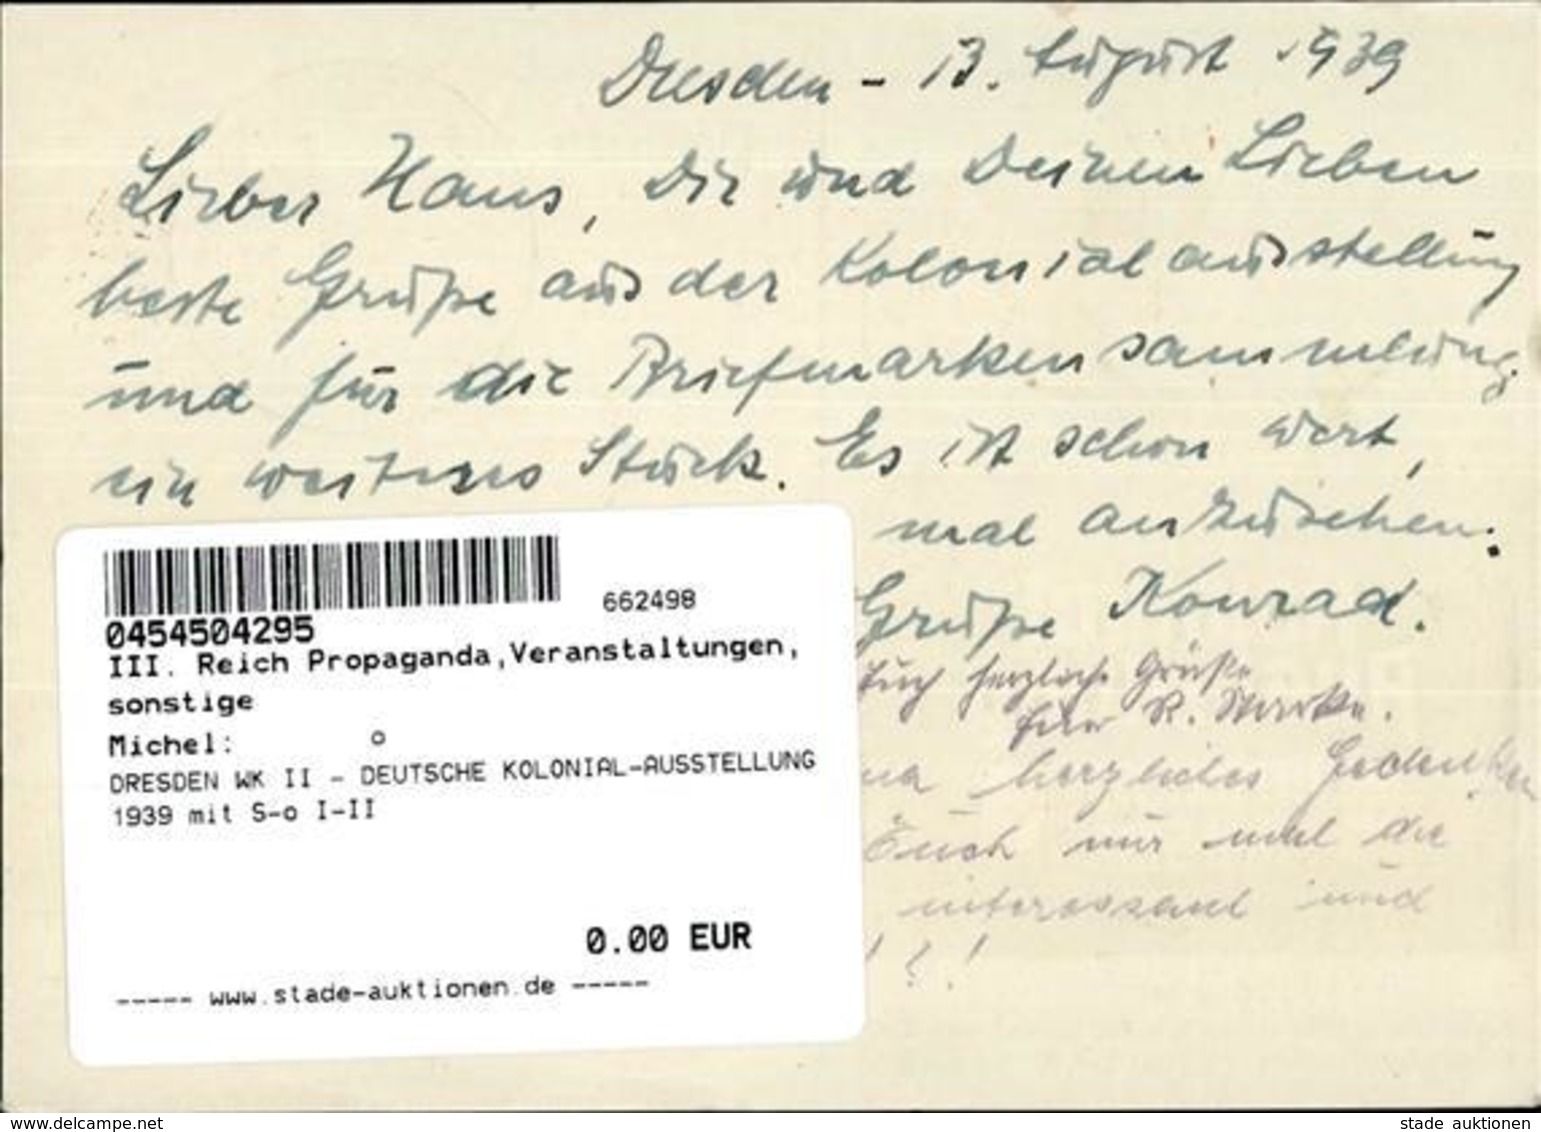 Dresden - 13. August 1939
Lieber Hans, Dir und Deinen Lieben
beste Grüße aus der Kolonialausstellung
und für die Briefmarkensammlung
ein weiteres Stück. Es ist schon wert,
mal anzuschen.
Grüße Konrad.
Euch herzliche Grüße
herzliches Gedenken
Euch nur mal die
interessant und
! ? !
662498
0454504295
III. Reich Propaganda,Veranstaltungen,
sonstige
Michel: o
DRESDEN WK II - DEUTSCHE KOLONIAL-AUSSTELLUNG
1939 mit S-o I-II
0.00 EUR
----- www.stade-auktionen.de -----
www.delcampe.net
stade auktionen